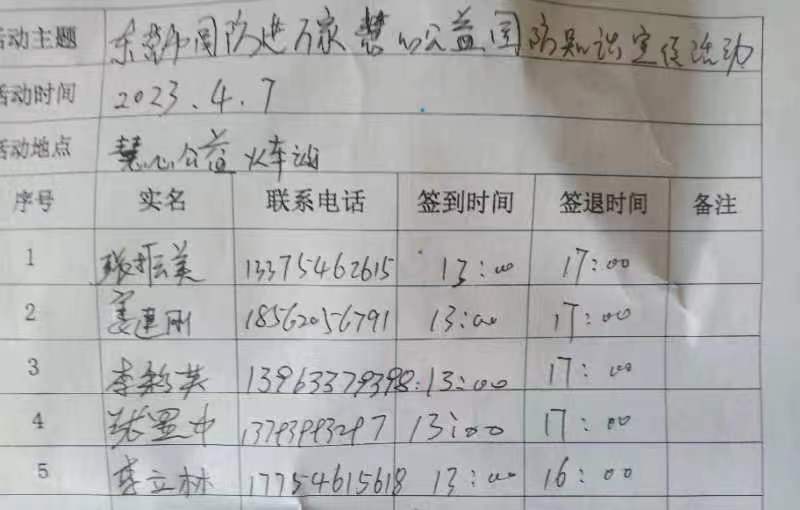 活动主题 东营市国防进万家 慧心公益国防知识宣传活动
活动时间 2023.4.7
活动地点 慧心公益火车站
序号 实名 联系电话 签到时间 签退时间 备注
1 张振美 13375462615 13:00 17:00
2 姜建刚 18562056791 13:00 17:00
3 李彩英 13963379398 13:00 17:00
4 张 中 13793993297 13:00 17:00
5 李立林 17754615618 13:00 16:00